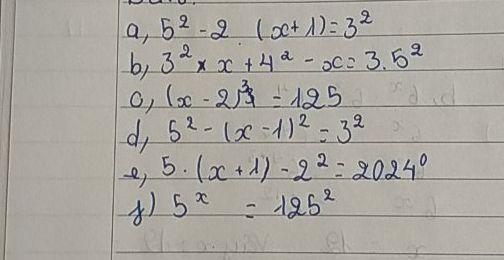 a, 5² - 2 (x+1) = 3²
b, 3² × x + 4² - x = 3.5²
c, (x - 2)³ = 125
d, 5² - (x - 1)² = 3²
e, 5. (x + 1) - 2² = 2024⁰
f) 5ˣ = 125²